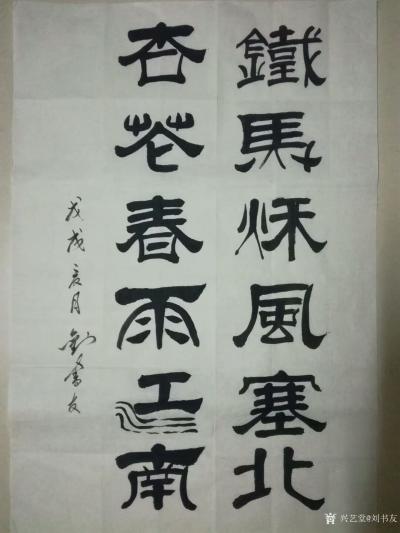 鐵馬秌風塞北
杏花春雨江南
戊戌亥月劉書友
兴艺堂@刘书友